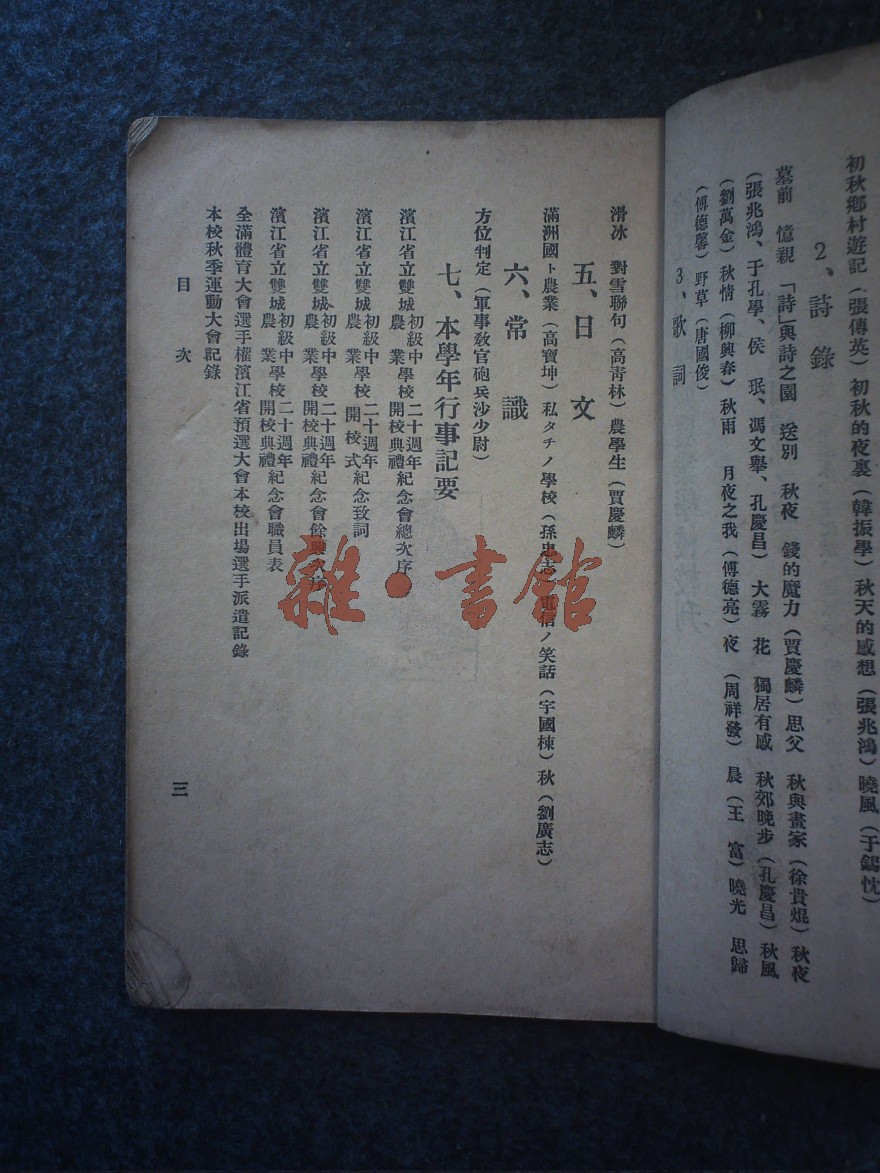 初秋鄉村遊記(張傳英) 初秋的夜裏(韓振學) 秋天的感想(張兆鴻) 曉風(于錫忱)
2、詩錄
墓前 憶親 「詩」與詩之園 送別 秋夜 錢的魔力(賈慶麟) 思父 秋與畫家(徐貴焜) 秋夜
(張兆鴻、于孔學、侯 珉、馮文舉、孔慶昌) 大霧 花 獨居有感 秋郊晚步(孔慶昌) 秋風
(劉萬金) 秋情(柳興春) 秋雨 月夜之我(傅德亮) 夜 (周祥發) 晨(王 富) 曉光 思歸
(傅德馨) 野草(唐國俊)
3、歌詞
滑冰 對雪聯句(高青林) 農學生(賈慶麟)
五、日文
滿洲國ト農業(高寶坤) 私タチノ學校(孫忠 信ノ笑話(宇國棟) 秋(劉廣志)
六、常識
方位判定(軍事教官砲兵沙少尉)
七、本學年行事記要
濱江省立雙城初級中農業學校二十週年開校典禮紀念會總次序
濱江省立雙城初級中農業學校二十週年開校式紀念致詞
濱江省立雙城初級中農業學校二十週年開校典禮紀念會餘興次序
濱江省立雙城初級中農業學校二十週年開校典禮紀念會職員表
全滿體育大會選手權濱江省預選大會本校出場選手派遣記錄
本校秋季運動大會記錄
目次
三
雜·書館